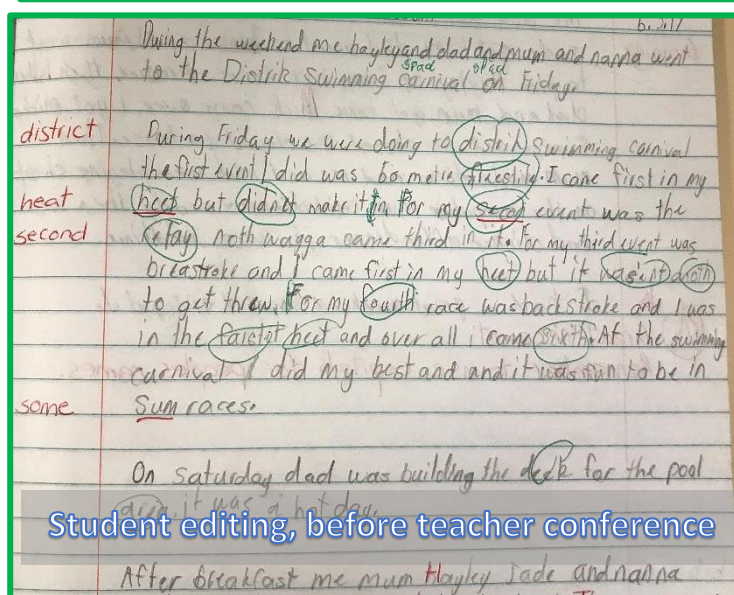 During the weekend me hayley and dad and mum and nanna went
spad spad
to the Distrik Swimming carnival on Friday.
district During Friday we were doing to distrik Swimming carnival
the first event I did was 50 metre freestile. I came first in my
heat heet but didn't make it in. For my secon event was the
second relay noth wagga came third in it. For my third event was
breastroke and i came first in my heet but it wasint
to get threw. For my fourth race was backstroke and I was
in the fairstot heet and over all i came sixth. At the swimming
carnival I did my best and and it was fun to be in
some Sum races.
On saturday dad was building the deck for the pool
area. it was a hot day.
Student editing, before teacher conference
After breakfast me mum Hayley Jade and nanna